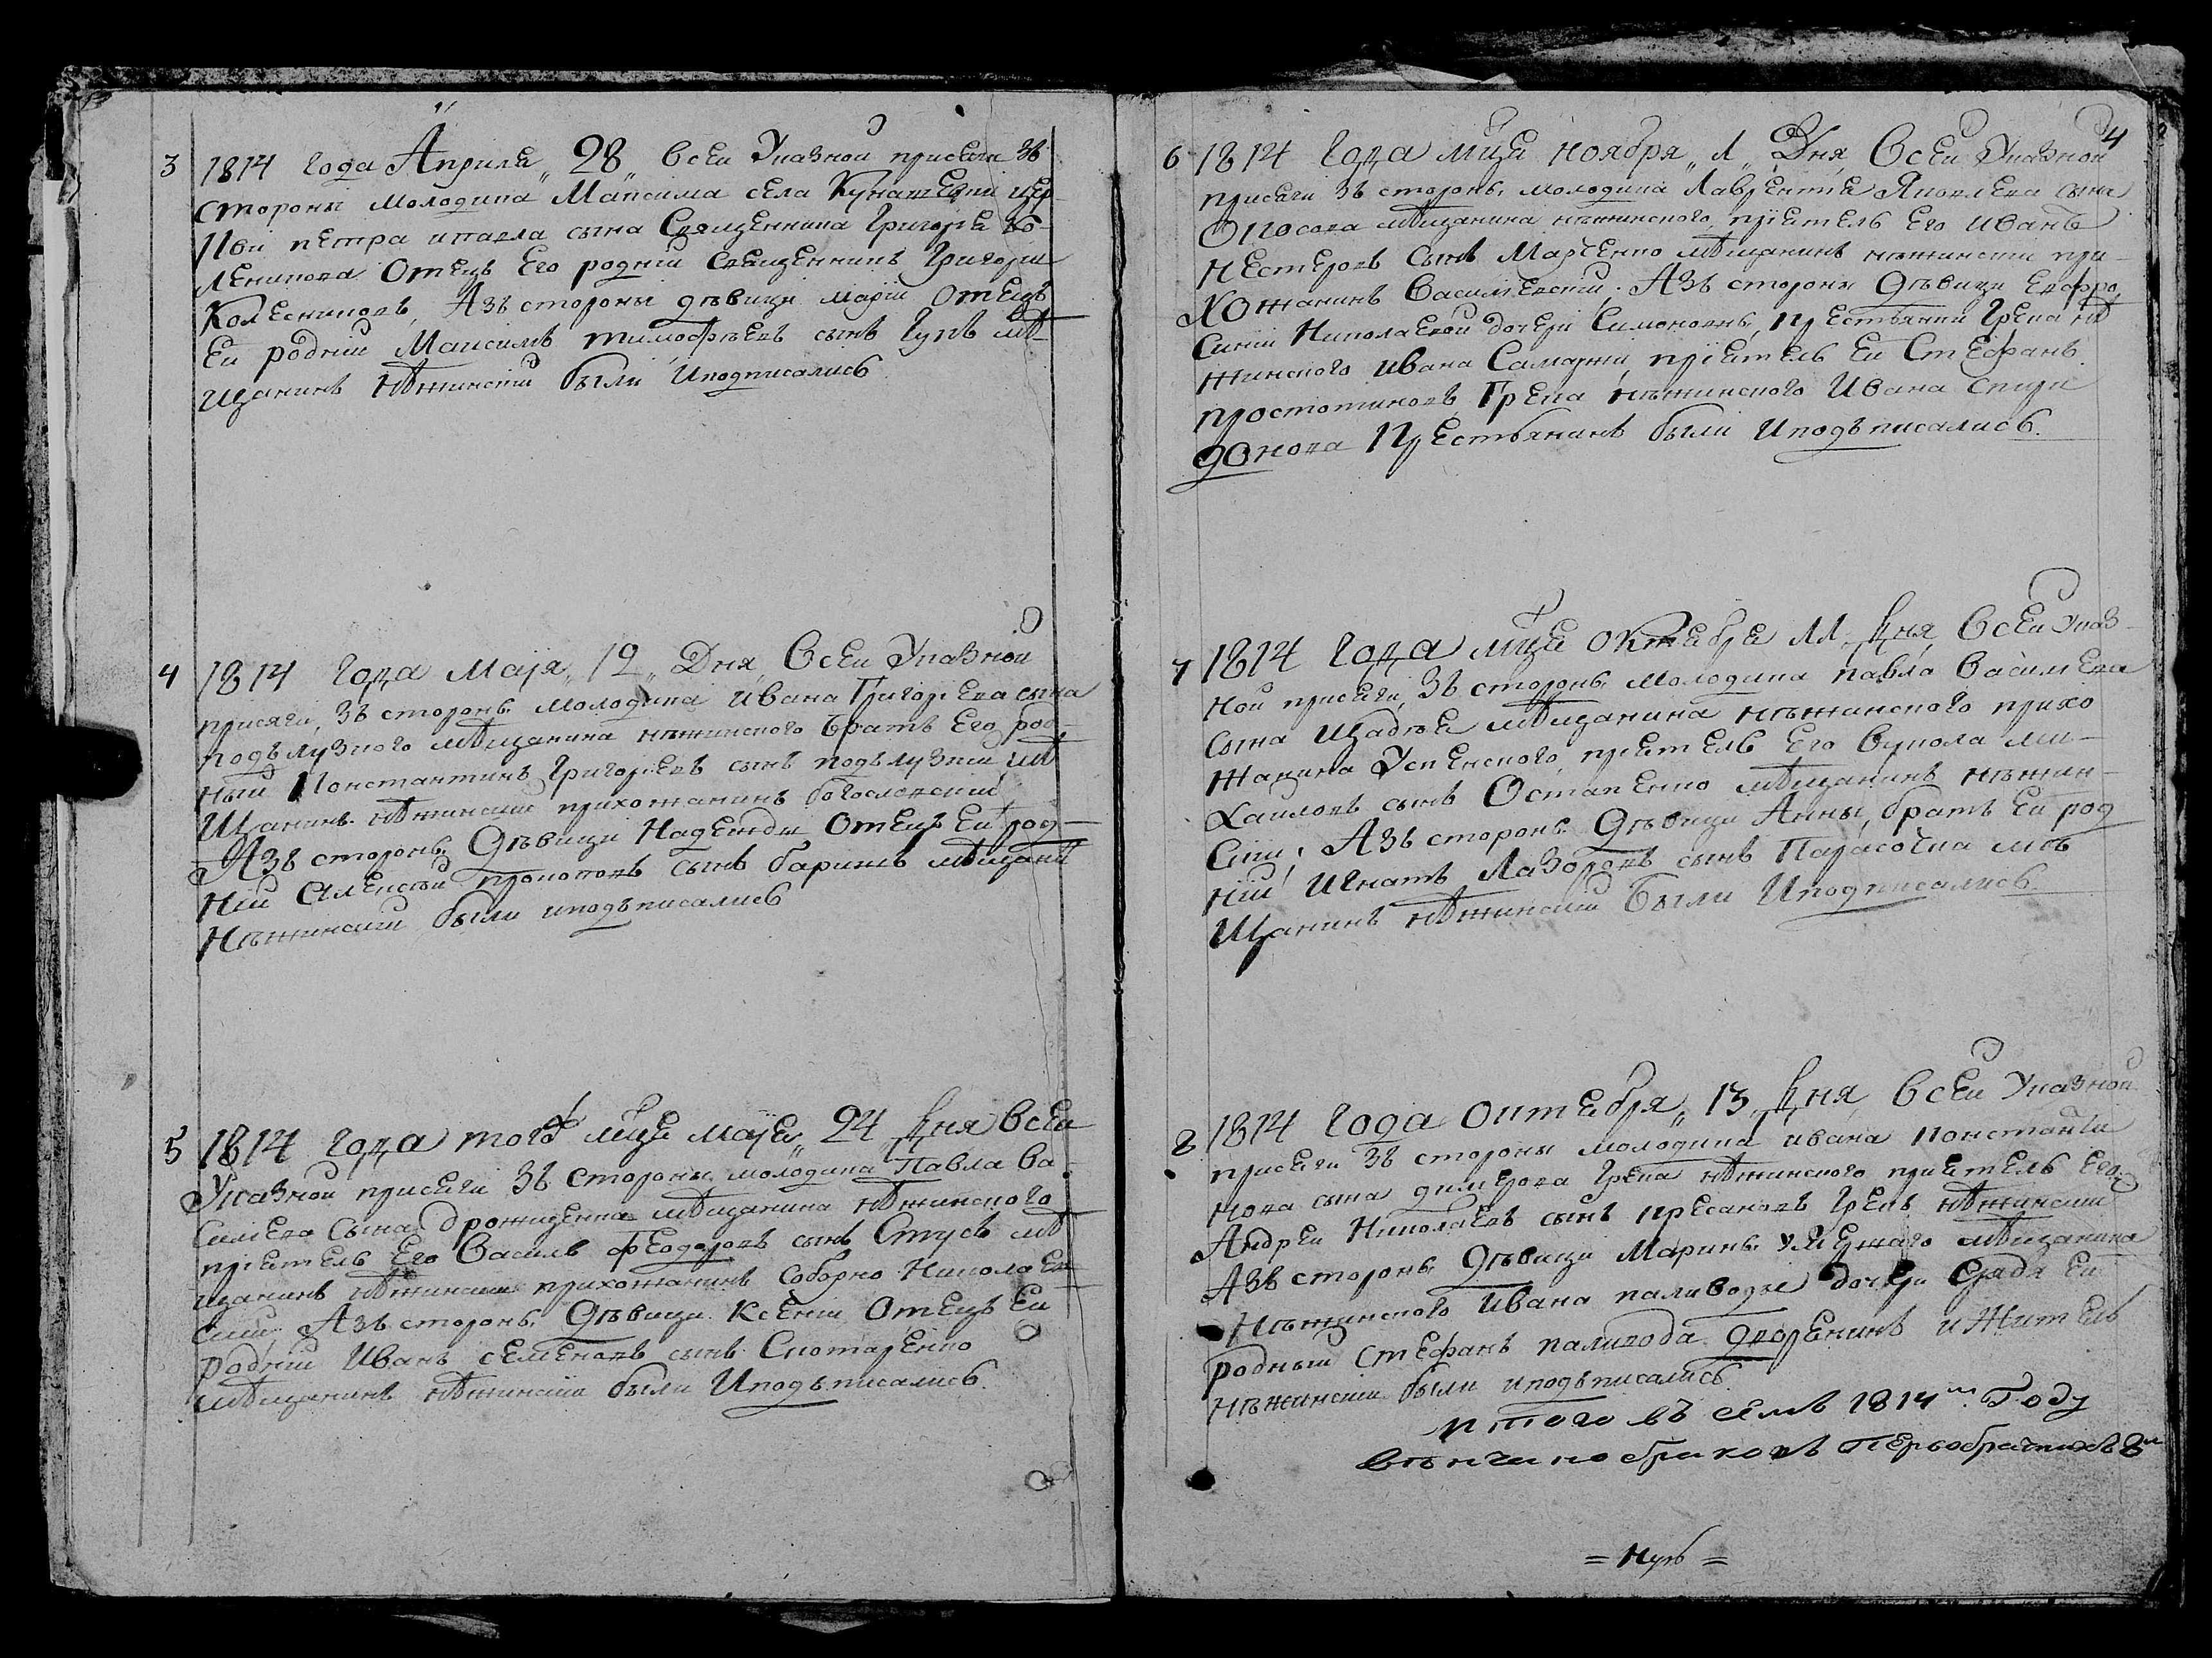 3 1814 года Априля „28„ всеи Указной присяги зъ
стороны молодика Максима села Кунашевки цер
кви петра ипавла сына Священника Григорія Ко-
лесникова Отецъ Его родній Священникъ Григорій
Колесниковъ, Азъ стороны дѣвици маріи Отецъ
Еи родній Максимъ тимофѣевъ сынъ Гулъ мѣ-
щанинъ нѣжинскій были Иподписались
4 1814 года Маія „12„ Дня, Всеи Указной
присяги, зъ стороны молодика Ивана Григоріева сына
подвлузкого мѣщанина нѣжинского братъ Его род-
ный Константинъ Григоріевъ сынъ подвлузкій мѣ
Щанинъ нѣжинскій прихожанинъ богословскій,
Азъ стороны Дѣвици Надежды Отецъ Еи род-
ній Алексѣй прокоповъ сынъ мѣщани
Нѣжинскій были иподъписались
5 1814 года того мце маія „24 Дня всеи
Указной присяги Зъ Стороны молодика Павла Ва
силіева Сына Дрожщенка мѣщанина нѣжинского
пріятель Его Василь феодоровъ сынъ Стусь мѣ
щанинъ нѣжинскій прихожанинъ Соборно Николаев
скій Азъ стороны Дѣвици Ксеніи Отецъ Еи
родній Иванъ семеновъ сынъ Скотаренко
мѣщанинъ нѣжинскій были Иподъписались
4
6 1814 Года мця ноября „1„ Дня, Всеи Указной
присяги зъ стороны молодика Лаврентія Яковлева сына
мѣщанина нѣжинского, пріятель Его Иванъ
Нестеровъ Сынъ Марченко мѣщанинъ нѣжинскій при-
хожанинъ Василіевскій. Азъ стороны Дѣвици Евфро
синіи Николаевой дочери Симоновны, крестянки Грека нѣ
жинского Ивана пріятель Еи Стефанъ
Грека нѣжинского Ивана спири
донова Крестьянинъ были Иподъписались.
7 1814 Года мця октября 11 Дня, Всеи Указ
ной присяги, Зъ стороны Молодика павла Василіева
сына мѣщанина нѣжинского прихо
жанина Успенского, пріятель Его Вукола ми-
хаиловъ сынъ Остапенко мѣщанинъ нѣжин-
скій, Азъ стороны Дѣвици Анны, братъ Еи род
ній Игнатъ Лазоровъ сынъ Парасочка мѣ
Щанинъ нѣжинскій Были Иподписались
8 1814 Года октября „13„ Дня, всеи Указной
присяги Зъ стороны молодика ивана константи
нова сына димерова Грека нѣжинского пріятель Его
Андрей Николаевъ сынъ Грекъ нѣжинскій
Азъ стороны Дѣвици Марины умершаго мѣщанина
Нѣжинского Ивана паливоды дочери Дядя Еи
родный Стефанъ паливода дворенинъ и Житель
Нѣжинскій были иподъписались
итого въ семъ 1814м Году
вѣнчано браковъ первобрачныхъ 8м